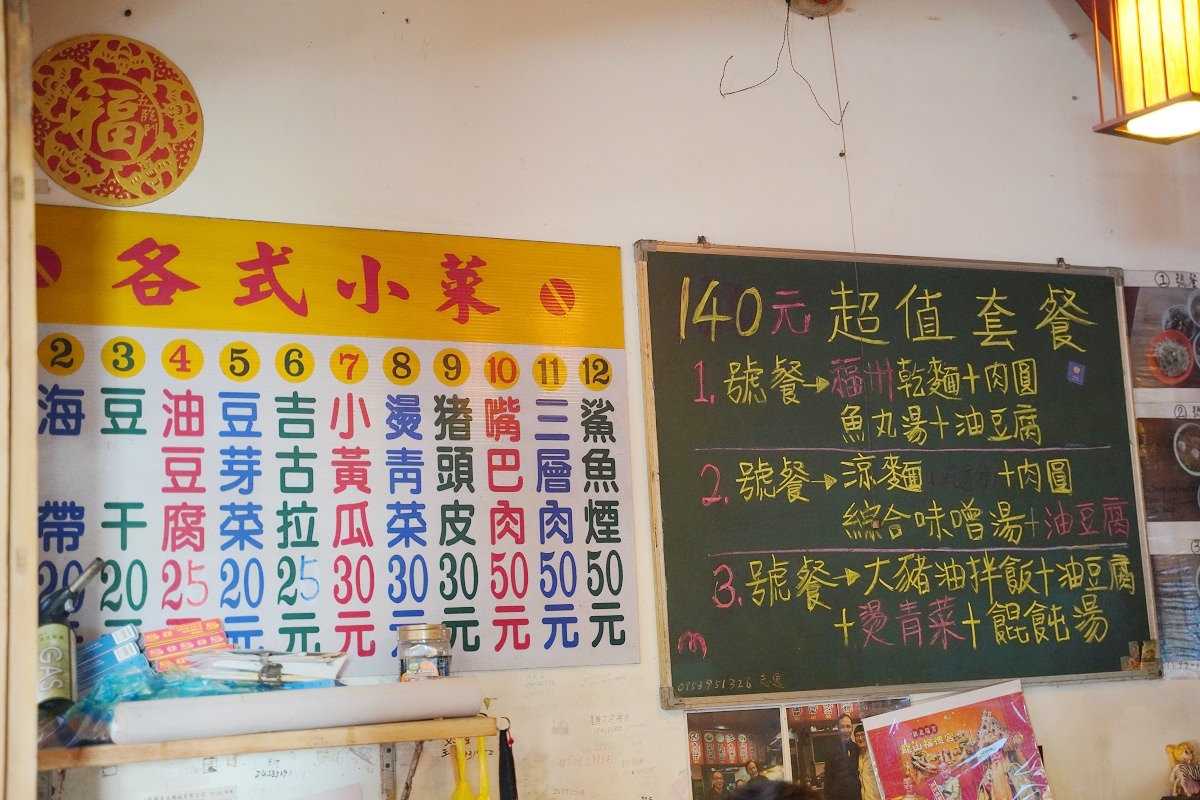 福
各式小菜
2 海帶 20元
3 豆干 20元
4 油豆腐 25元
5 豆芽菜 20元
6 吉古拉 25元
7 小黃瓜 30元
8 燙青菜 30元
9 豬頭皮 30元
10 嘴巴肉 50元
11 三層肉 50元
12 鯊魚煙 50元
140元超值套餐
1.號餐→福州乾麵+肉圓
魚丸湯+油豆腐
2.號餐→涼麵 +肉圓
綜合味噌湯+油豆腐
3.號餐→大豬油拌飯+油豆腐
+燙青菜+餛飩湯
0953951326
GAS